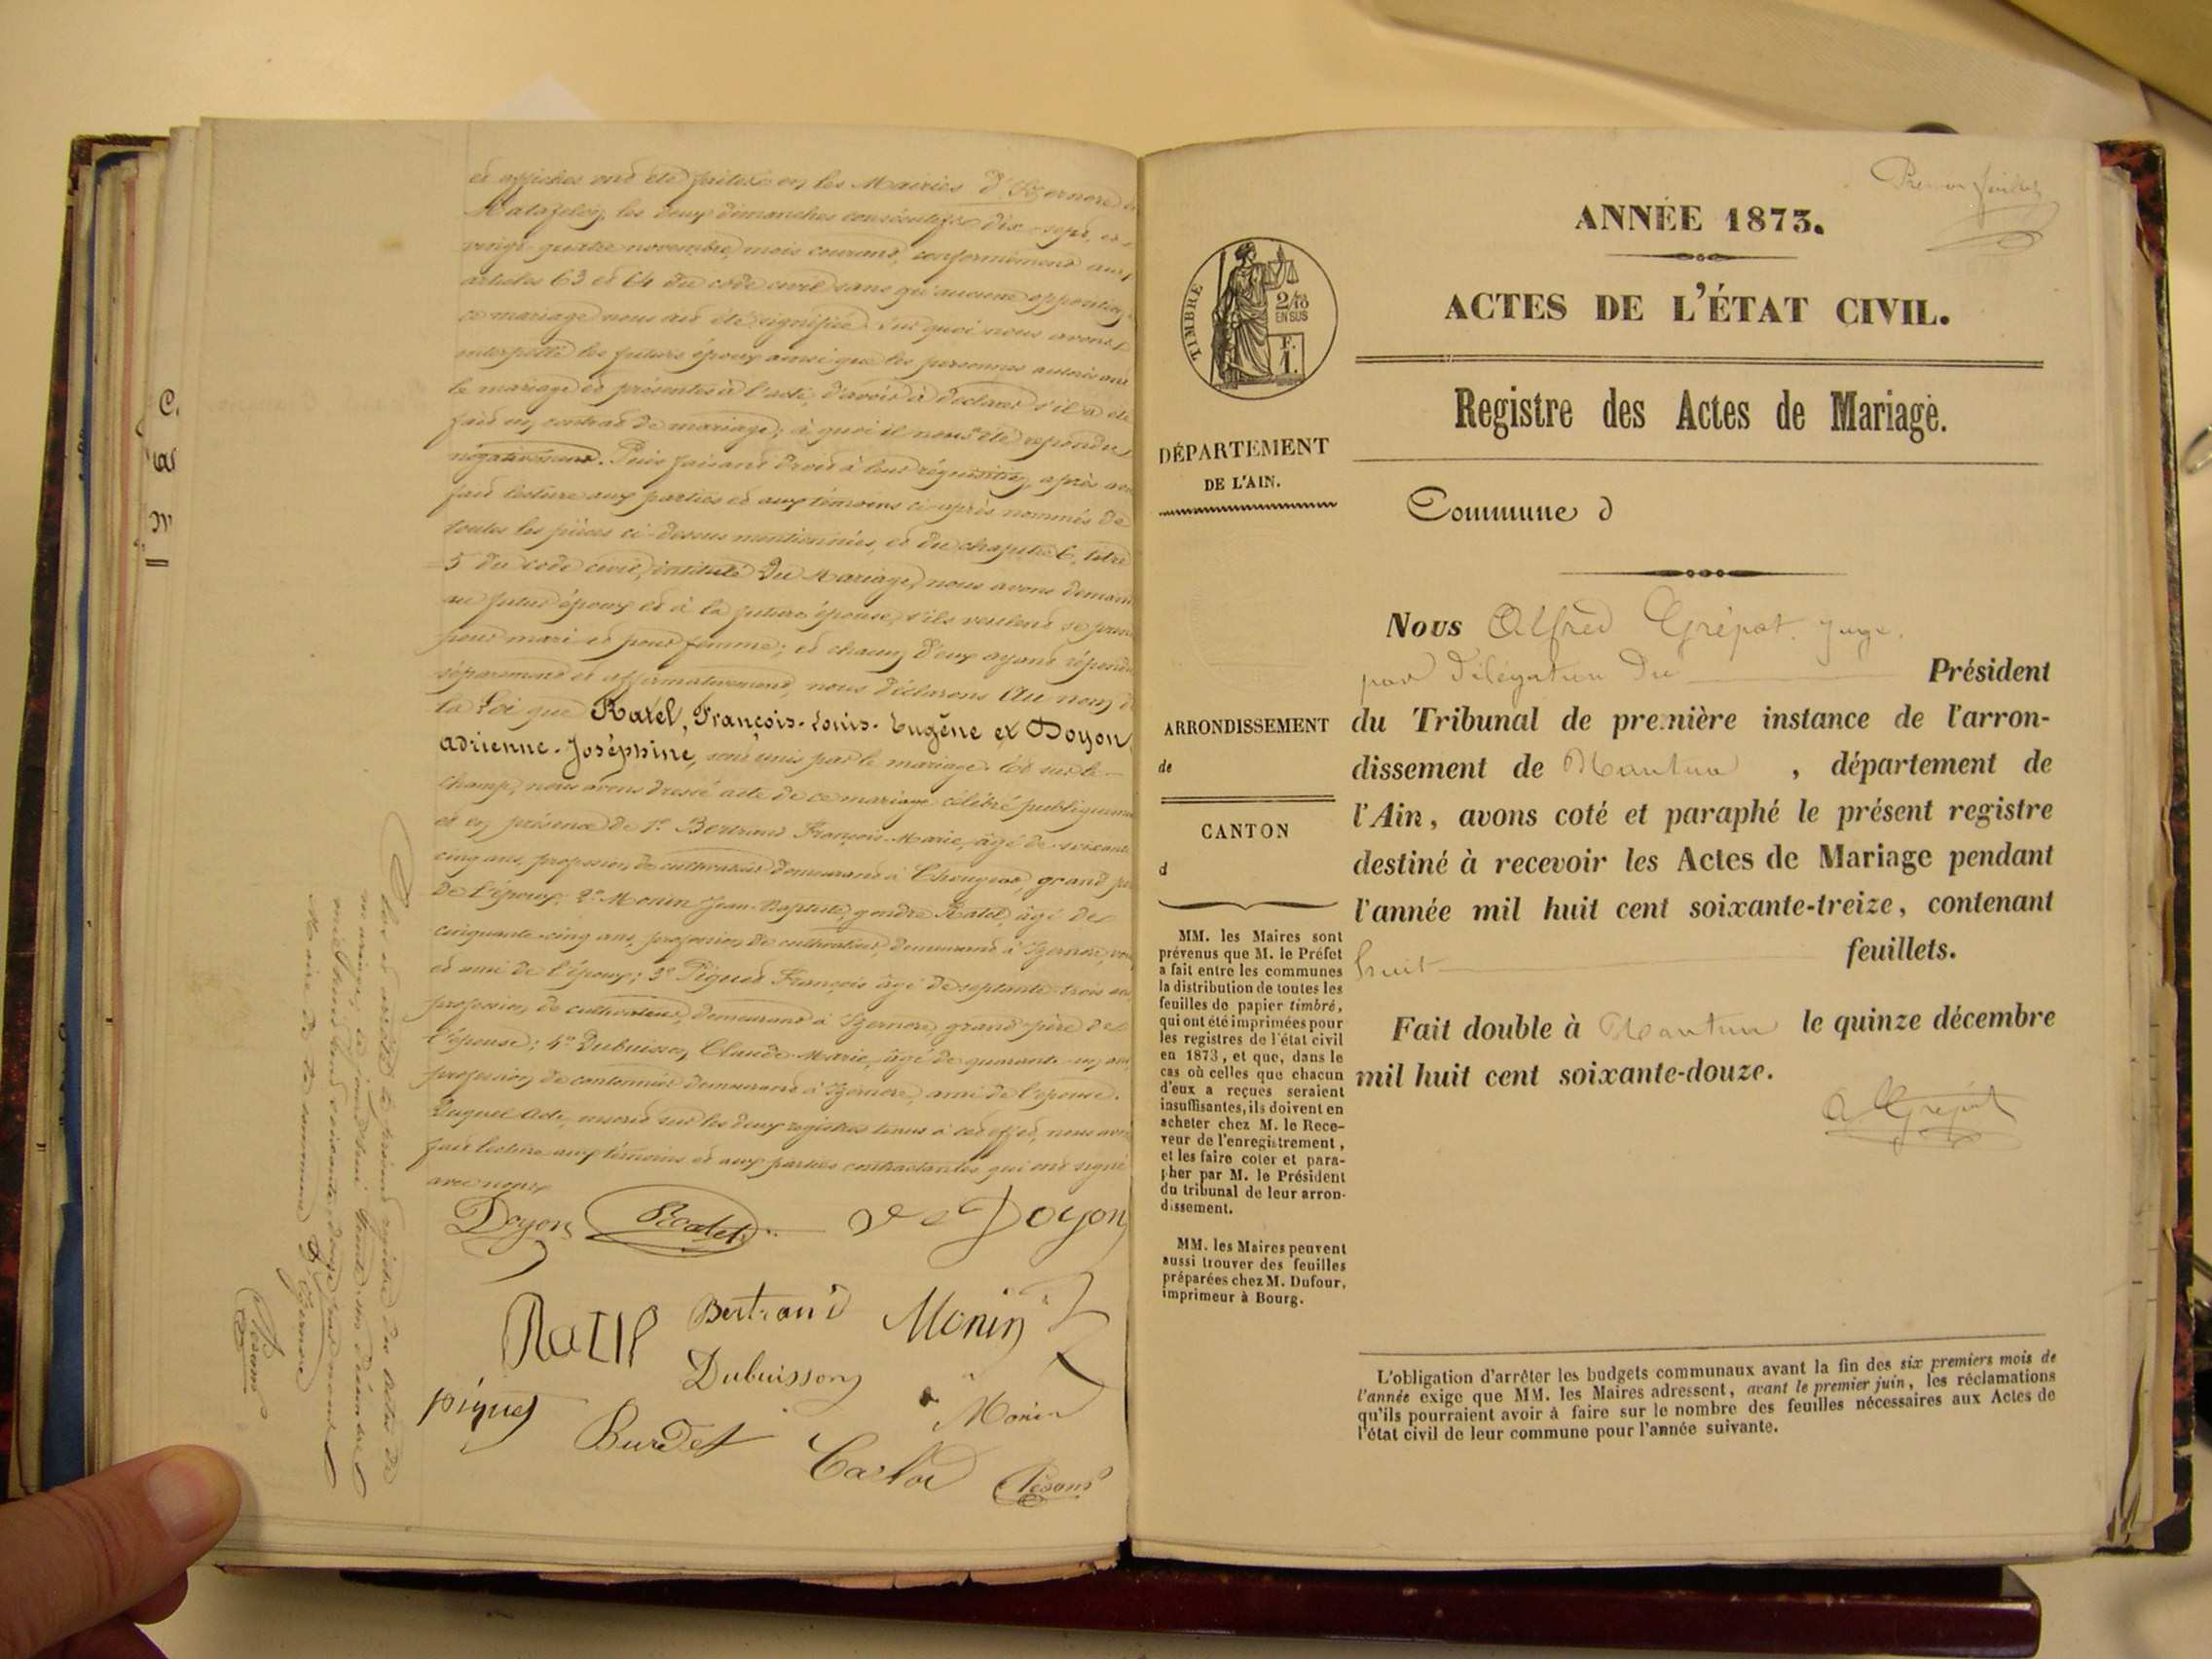 et affiches ont été faites en les Mairies d'Izernore et
Matafelon, les deux dimanches consécutifs dix-sept, et
vingt-quatre novembre, mois courant, conformément aux
articles 63 et 64 du code civil sans qu'aucune opposition
ce mariage nous ait été signifiée. Sur quoi nous avons
interpellé les futurs époux ainsi que les personnes autorisant
le mariage et présentes à l'acte, d'avoir à déclarer s'il a été
fait un contrat de mariage; à quoi il nous a été répondu
négativement. Puis faisant droit à leur réquisition, après av
fait lecture aux parties et aux témoins ci-après nommés de
toutes les pièces ci-dessus mentionnées, et du chapitre 6, titre
5 du code civil, intitulé Du Mariage, nous avons deman
au futur époux et à la future épouse, s'ils veulent se pren
pour mari et pour femme; et chacun d'eux ayant répondu
séparément et affirmativement, nous déclarons Au nom d
la Loi que Ratel, François-Louis-Eugène et Doyon,
Adrienne-Joséphine, sont unis par le mariage. Et sur le-
champ, nous avons dressé acte de ce mariage célébré publiquem
et en présence de 1º Bertrand François-Marie, âgé de soixante
cinq ans, profession de cultivateur demeurant à grand pè
de l'époux; 2º Monin Jean-Baptiste, gendre Ratel, âgé de
cinquante-cinq ans, profession de cultivateur, demeurant à Izernore,
et ami de l'époux; 3º Piquet François âgé de septante-trois ans
profession de cultivateur, demeurant à Izernore, grand-père de
l'épouse; 4º Dubuisson Claude-Marie, âgé de quarante-un ans
profession de cantonnier demeurant à Izernore, ami de l'épouse.
Duquel Acte, inscrit sur les deux registres tenus à cet effet, nous avons
fait lecture aux témoins et aux parties contractantes qui ont signé
avec nous.
Doyon Ratel Doyon
Ratel Bertrand Monin
Dubuisson
piquet Burdet Monin
Pesant
Clos et arrêté le présent registre des Actes de
mariage, ce jourd'hui trente un Décembre
mil huit cent soixante-douze par nous
Maire de la commune d'Izernore
Pesant
Premier feuillet
ANNÉE 1873.
ACTES DE L'ÉTAT CIVIL.
Registre des Actes de Mariage.
TIMBRE
2/10
EN SUS
F.
1.
DÉPARTEMENT
DE L'AIN.
ARRONDISSEMENT
de
CANTON
d
MM. les Maires sont
prévenus que M. le Préfet
a fait entre les communes
la distribution de toutes les
feuilles de papier timbré,
qui ont été imprimées pour
les registres de l'état civil
en 1873, et que, dans le
cas où celles que chacun
d'eux a reçues seraient
insuffisantes, ils doivent en
acheter chez M. le Rece-
veur de l'enregistrement,
et les faire coter et para-
pher par M. le Président
du tribunal de leur arron-
dissement.
MM. les Maires peuvent
aussi trouver des feuilles
préparées chez M. Dufour,
imprimeur à Bourg.
Commune d
Nous Alfred Grépat. juge.
par délégation du Président
du Tribunal de première instance de l'arron-
dissement de Nantua , département de
l'Ain, avons coté et paraphé le présent registre
destiné à recevoir les Actes de Mariage pendant
l'année mil huit cent soixante-treize, contenant
huit feuillets.
Fait double à Nantua le quinze décembre
mil huit cent soixante-douze.
A. Grépat
L'obligation d'arrêter les budgets communaux avant la fin des six premiers mois de
l'année exige que MM. les Maires adressent, avant le premier juin, les réclamations
qu'ils pourraient avoir à faire sur le nombre des feuilles nécessaires aux Actes de
l'état civil de leur commune pour l'année suivante.